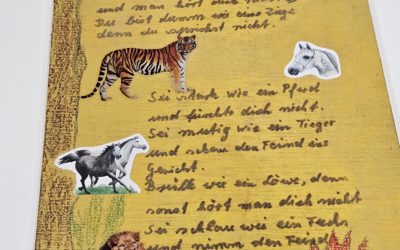 und man hört dich nicht.
Du bist dumm wie eine Zige
denn du sprichst nicht.
Sei stark wie ein Pferd
und fürchte dich nicht.
Sei mutig wie ein Tieger
und schau den Feind ins
Gesicht.
Brülle wie ein Löwe, denn
sonst hört man dich nicht
Sei schlau wie ein Fuchs
und nimm den Feind